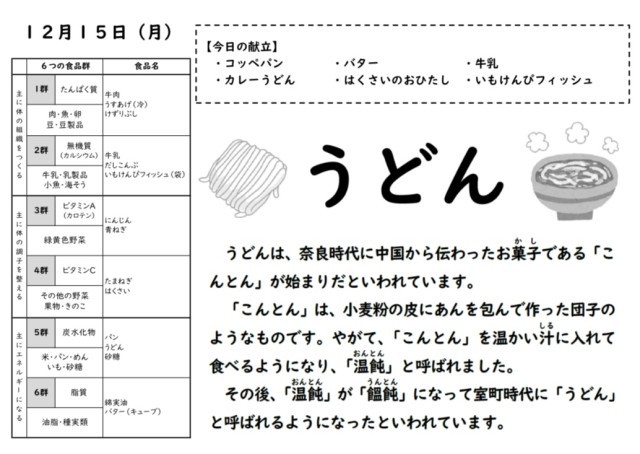 12月15日（月）
【今日の献立】
・コッペパン ・バター ・牛乳
・カレーうどん ・はくさいのおひたし ・いもけんぴフィッシュ
6つの食品群 食品名
主に体の組織をつくる
1群 たんぱく質
肉・魚・卵
豆・豆製品
牛肉
うすあげ(冷)
けずりぶし
2群 無機質
(カルシウム)
牛乳・乳製品
小魚・海そう
牛乳
だしこんぶ
いもけんぴフィッシュ(袋)
主に体の調子を整える
3群 ビタミンA
(カロテン)
緑黄色野菜
にんじん
青ねぎ
4群 ビタミンC
その他の野菜
果物・きのこ
たまねぎ
はくさい
主にエネルギーになる
5群 炭水化物
米・パン・めん
いも・砂糖
パン
うどん
砂糖
6群 脂質
油脂・種実類
綿実油
バター(キューブ)
うどん
うどんは、奈良時代に中国から伝わったお菓子である「こ
かし
んとん」が始まりだといわれています。
「こんとん」は、小麦粉の皮にあんを包んで作った団子の
ようなものです。やがて、「こんとん」を温かい汁に入れて
しる
食べるようになり、「温飩」と呼ばれました。
おんとん
その後、「温飩」が「饂飩」になって室町時代に「うどん」
おんとん うんとん
と呼ばれるようになったといわれています。